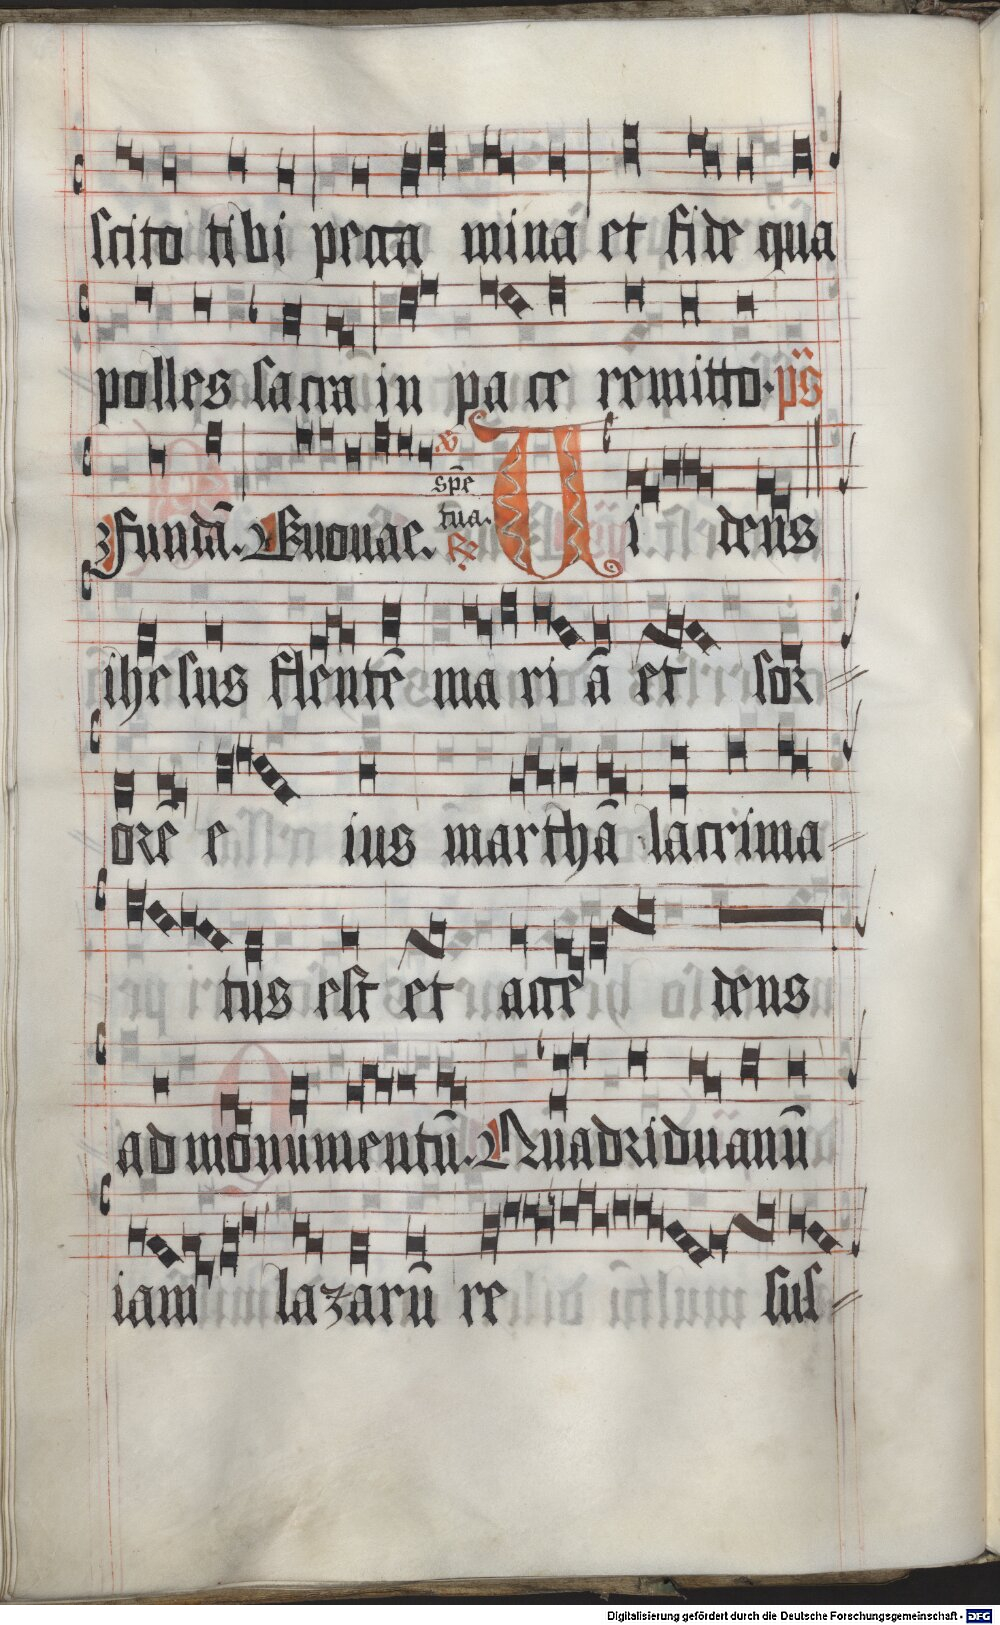 scito tibi pecca mina et fide qua
polles sacra in pa ce remitto. ps
Fundā. Euouae. v spē tua. R Vi dens
ihesus flentē ma ri ā et sor
orē e ius marthā lacrima
tus est et acce dens
ad monumentū. Quadriduanū
iam lazarū re sus
Digitalisierung gefördert durch die Deutsche Forschungsgemeinschaft - DFG